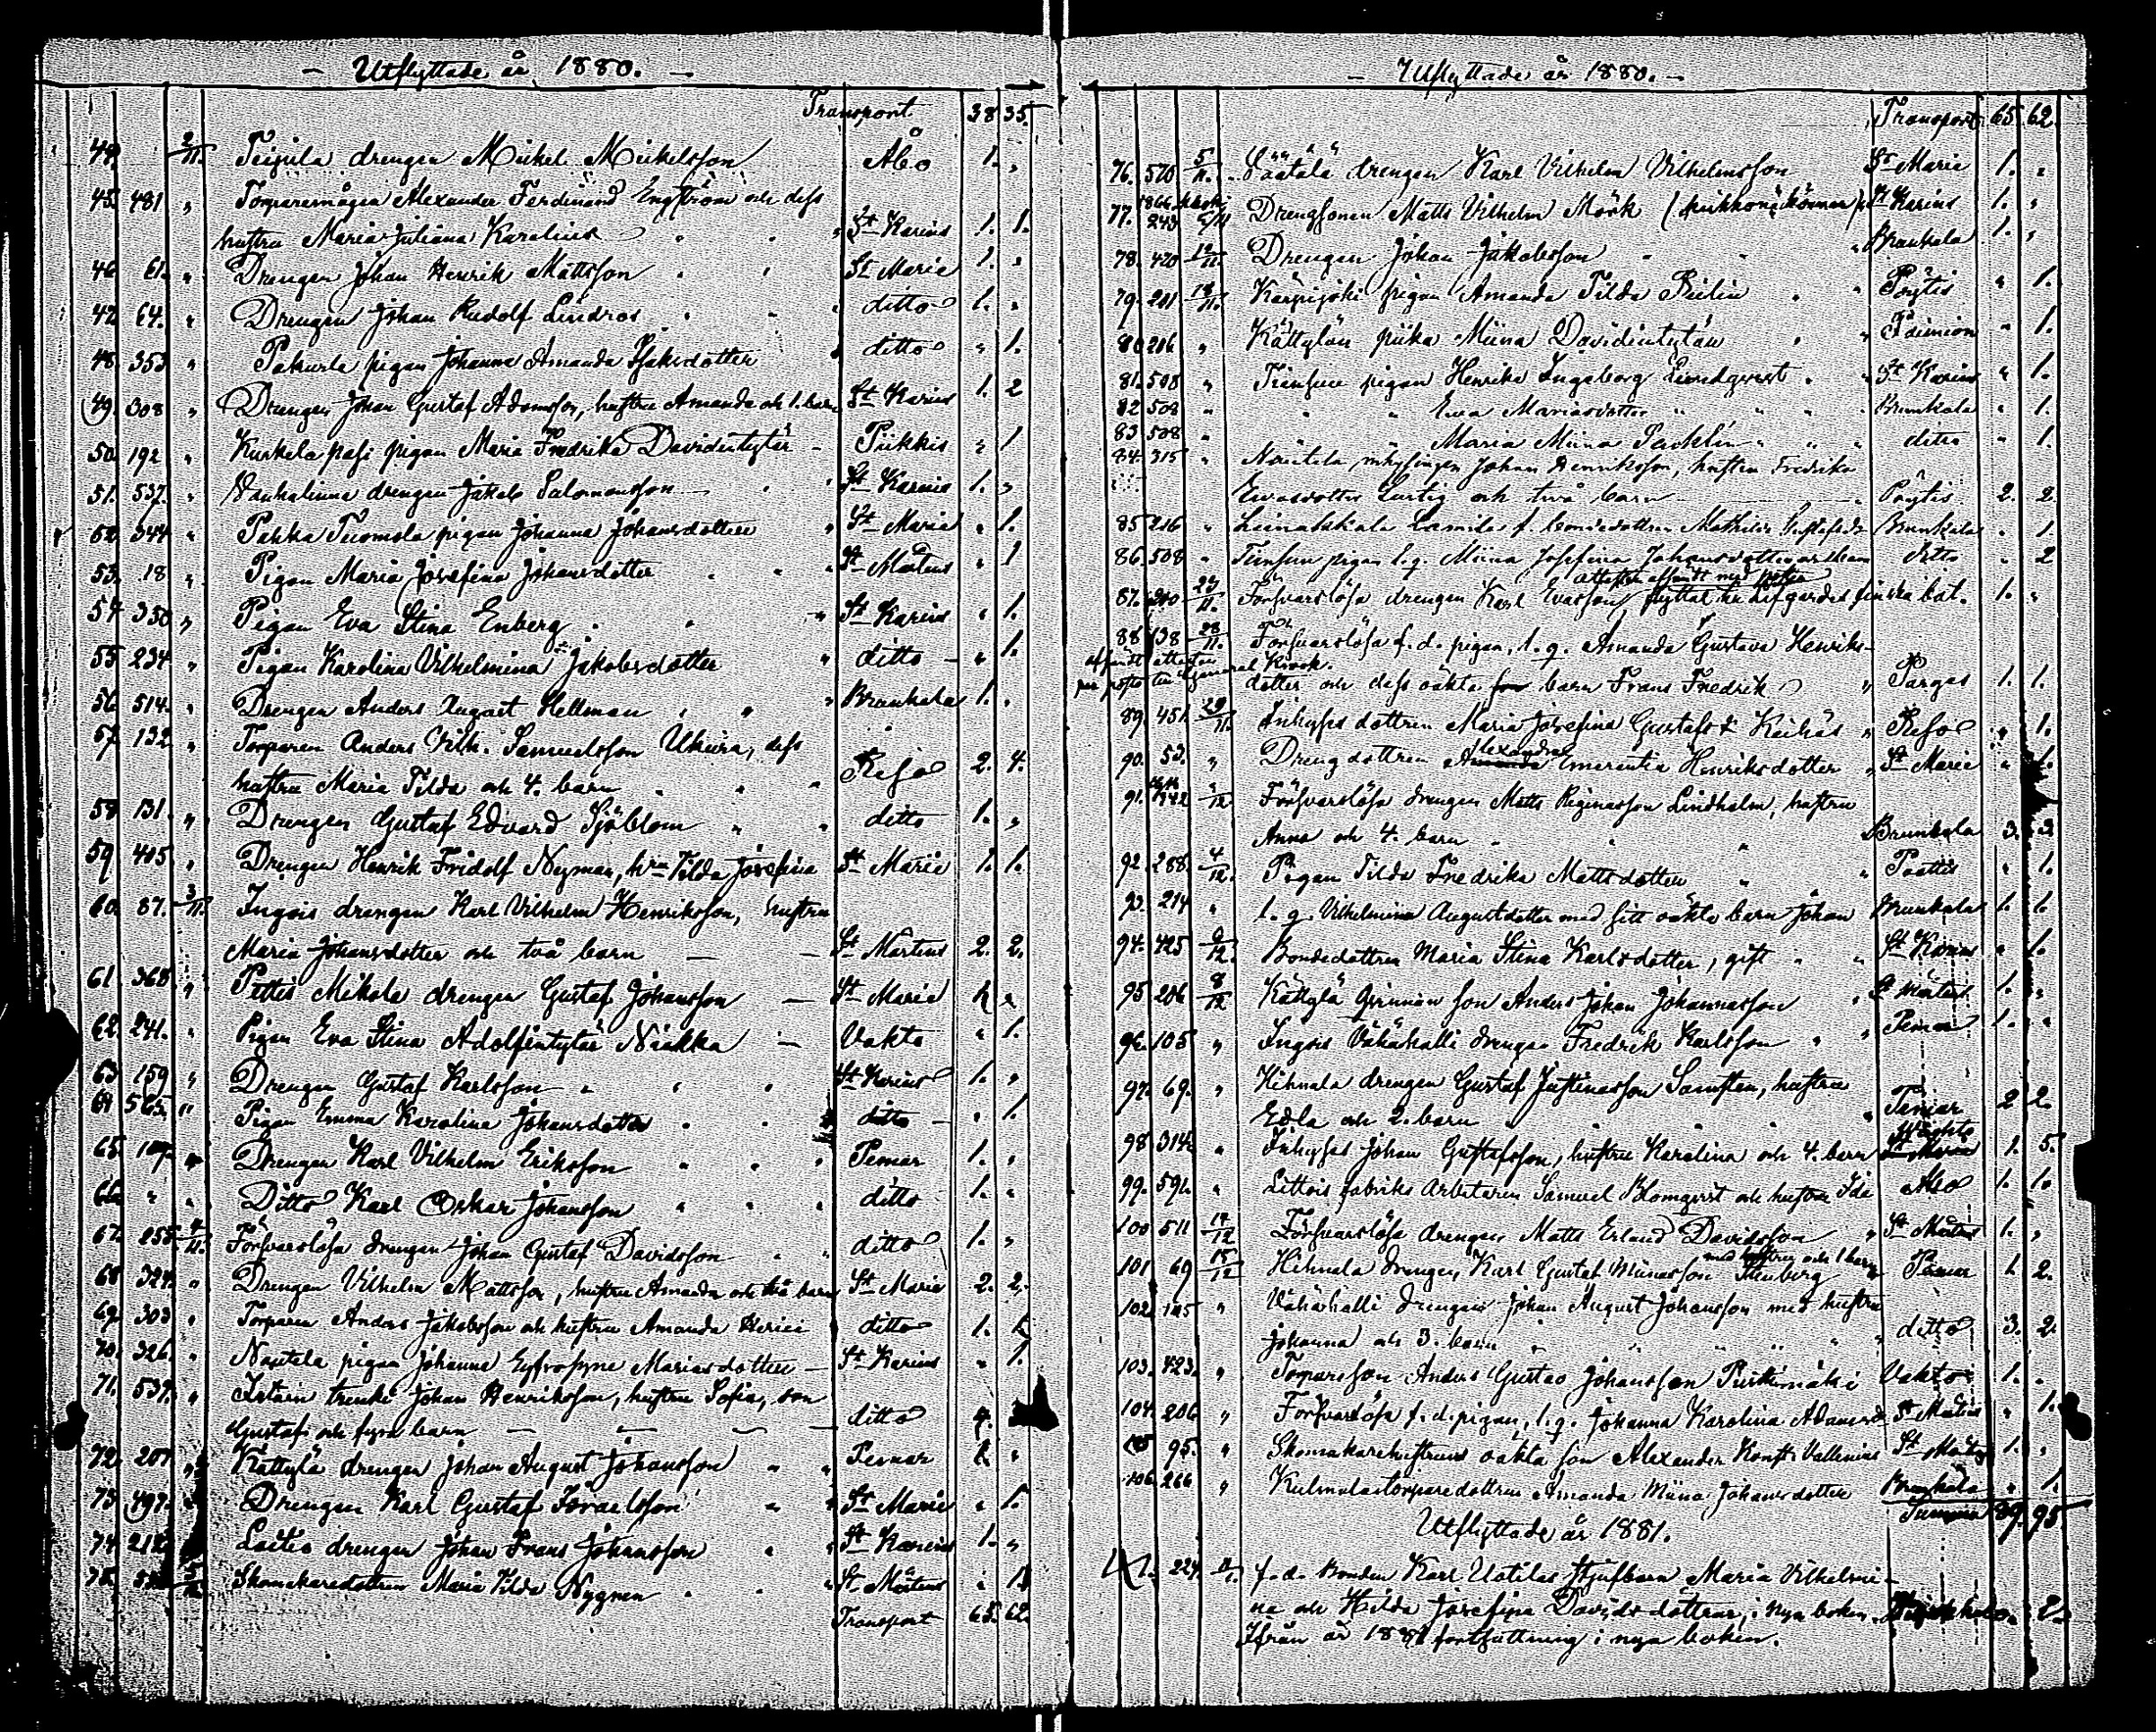 — Utflyttade år 1880. —
Transport 38 35.
44. 2/11. drengen Mickel Mickelsson Åbo 1. „
45. 481 „ Torparemågen Alexander Ferdinand Engström och dess
hustru Maria Juliana Karolius „ St Karins 1. 1.
46 61. „ Drengen Johan Henrik Mattsson St Marie 1. „
47. 64. „ Drengen Johan Rudolf Lindros ditto 1. „
48. 353 „ Pakurla pigan Johanna Amanda Isaksdotter ditto „ 1.
49. 308 „ Drengen Johan Gustaf Adamsson, hustru Amanda och 1. barn St Karins 1. 2
50. 192 „ Kurkela pigan Maria Fredrika Davidintytär Piikkis „ 1
51. 537. „ Vanhalinna drengen Jakob Salomonsson St Karins 1. „
52. 344 „ Pahka Tuomola pigan Johanna Johansdotter „ St Marie „ 1.
53. 18 „ Pigan Maria Josefina Johansdotter „ St Mårtens „ 1
54 350 „ Pigan Eva Stina Enberg „ St Karins „ 1.
55 234 „ Pigan Karolina Vilhelmina Jakobsdotter „ ditto „ 1.
56. 514. „ Drengen Anders August Hellman „ Brunkala 1. „
57. 132 „ Torparen Anders Vilh. Samuelsson Ukura, dess
hustru Maria Tilda och 4. barn Reso 2. 4.
58 131. „ Drengen Gustaf Edvard Sjöblom ditto 1. „
59 405. „ Drengen Henrik Fridolf Nyman, hru Tilda Josefina St Marie 1. 1.
60. 87. 3/11. Ingois drengen Karl Vilhelm Henriksson, hustru
Maria Johansdotter och två barn St Mårtens 2. 2.
61. 368 „ Pettis Mikola drengen Gustaf Johansson St Marie 1. „
62. 241. „ Pigan Eva Stina Adolfintytär Niukka Vakto „ 1.
63 159 „ Drengen Gustaf Karlsson St Karins 1. „
64 565. „ Pigan Emma Karolina Johansdotter ditto „ 1.
65. „ Drengen Karl Vilhelm Eriksson Pemar 1. „
66. „ „ Ditto Karl Oskar Johansson ditto 1. „
67. 255 4/11. Försvarslösa drengen Johan Gustaf Davidsson ditto 1. „
68 324. „ Drengen Vilhelm Mattsson, hustru Amanda och två barn St Marie 2. 2.
69. 303 „ Torparen Anders Jakobsson och hustru Amanda ditto 1. 1.
70. 326. „ Nautela pigan Johanna Eufrosyne Mariasdotter St Karins „ 1.
71. 537. „ trenki Johan Henriksson, hustru Sofia, son
Gustaf och fyra barn ditto 4.
72. 207. „ Kättylä drengen Johan August Johansson Pemar 1. „
73 497. Drengen Karl Gustaf Israelsson St Marie „ 1.
74 212 Laitis drengen Johan Frans Johansson St Karins 1. „
75. Skomakaredottern Maria Tilda Nygren St Mårtens „ 1.
Transport 65. 62.
— Utflyttade år 1880. —
Transport 65. 62.
76. 520 5/11. Säätälä drengen Karl Vilhelm Vilhelmsson St Marie 1. „
77. 243 Drengsonen Matts Vilhelm Mörk St Karins 1. „
78. 420 12/11. Drengen Johan Jakobsson „ Brunkala 1. „
79. 201 Karpijoki pigan Amanda Tilda Pöytis „ 1.
80 206 „ Kättylän piika Miina Davidintytän „ Paimion „ 1.
81. 508 „ pigan Henrika Ingeborg Lundqvist „ St Karins „ 1.
82 508 „ „ „ Eva Mariasdotter „ Brunkala „ 1.
83 508 „ Maria Miina ditto „ 1.
84. 315 „ Nautela inhysingen Johan Henriksson, hustru Fredrika
Evasdotter Lurtig och två barn „ Pöytis 2. 2.
85 216 „ Brunkala „ 1
86. 508 „ pigan l.q. Miina Josefina ditto „ 2
87. Försvarslösa drengen Karl Evasson, flyttat till Lifgardes finska bat. 1. „
88 138 28/11. Försvarslösa f. d. pigan, l. q. Amanda Gustava Henriks-
dotter och dess oäkta barn Frans Fredrik „ Pargas 1. 1.
89. 451. 29/11. Inhyses dottren Maria Josefina „ Reso „ 1.
90. 53. „ Drengdottren Alexandra Emerentia Henriksdotter „ St Marie „ 1.
91. Försvarslösa drengen Matts Reginasson Lindholm, hustru
Anna och 4. barn Brunkala 3. 3.
92. 288. 4/12. Pigan Tilda Fredrika Mattsdotter „ Paattis „ 1.
93. 214 „ l. q. Vilhelmina Augustdotter med sitt oäkta barn Johan Brunkala 1. 1.
94. 425 Bondedottren Maria Stina Karlsdotter, gift St Karins „ 1.
95 206 8/12 Kättylä son Anders Johan Johannasson „ St Mårtens 1. „
96. 105 „ Ingois Vähähalli drengen Fredrik Karlsson „ Pemar 1. „
97. 69. „ Hihnala drengen Gustaf Justinasson Samsten, hustru
Edla och 2. barn „ Pemar 2 2.
98 314. „ Inhyses Johan Gustafsson, hustru Karolina och 4. barn 1. 5.
99. 591. „ Littois fabriks arbetaren Samuel Blomqvist och hustru Ida Åbo 1. 1.
100 511 14/12 Försvarslösa drengen Matts Erland Davidsson „ St Mårtens 1. „
med hustru och 1 barn
101 69 15/12 Hihnala drengen Karl Gustaf Miinasson Stenberg Pemar 1. 2.
102. 105 „ Vähähalli drengen Johan August Johansson med hustru
Johanna och 3. barn ditto 3. 2.
103. 423. „ Torparsson Anders Gustav Johansson Vakto 1. „
104. 206 „ Försvarslösa f. d. pigan, l. q. Johanna Karolina St Mårtens „ 1.
95. „ Skomakarehustruns oäkta son Alexander Vallenius St Mårtens 1. „
106. 266 „ Kulmalantorparedottren Amanda Miina Johansdotter Brunkala „ 1.
Summa 89. 95.
Utflyttade år 1881.
1. 224. f. d. Bonden Karl Uotilas styfbarn Maria Vilhelmi-
na och Hilda Josefina Davidsdöttrar, i nya boken. „ 2.
Ifrån år 1881 fortsättning i nya boken.